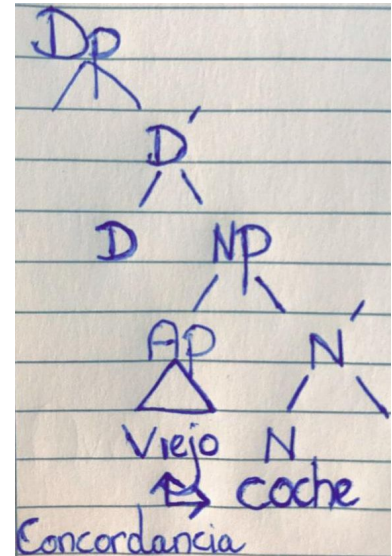 DP
D'
D NP
AP N'
Viejo N
coche
Concordancia